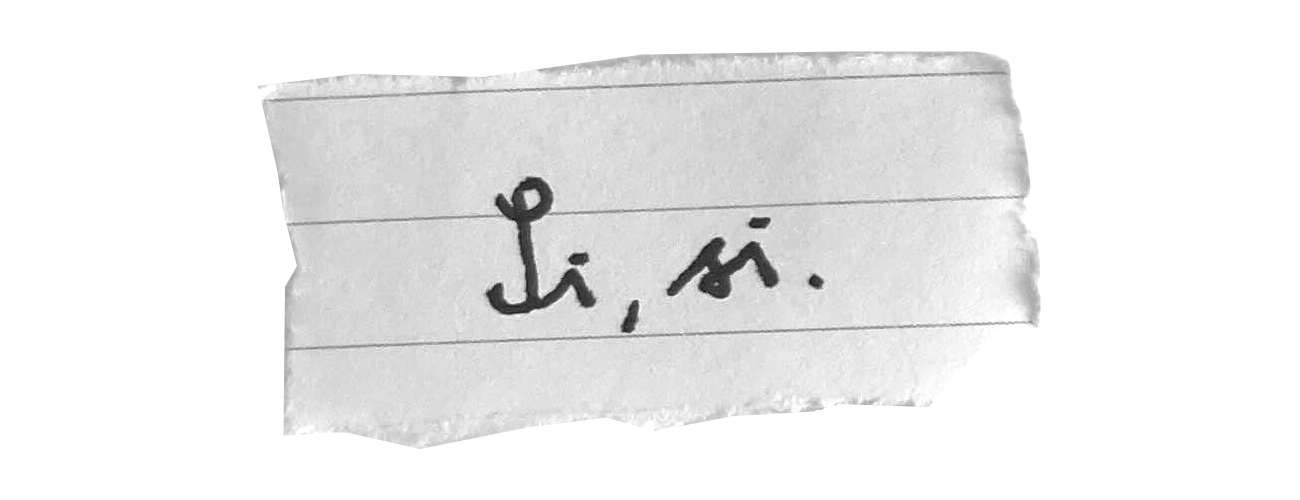 Si, si.